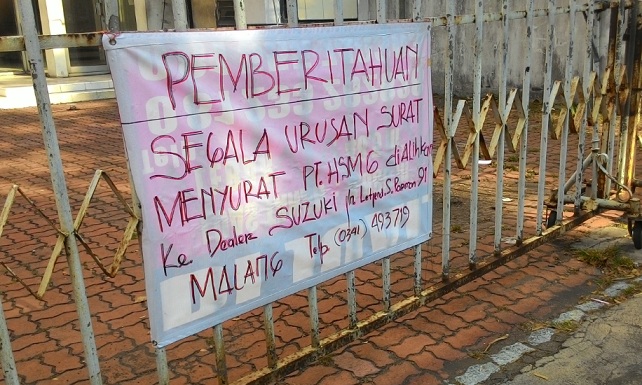 PEMBERITAHUAN
SEGALA URUSAN SURAT
MENYURAT PT. HSMG diALihkan
Ke Dealer SUZUKI Jln Letjend. S. Parman 91
MALANG Telp (0341) 493719